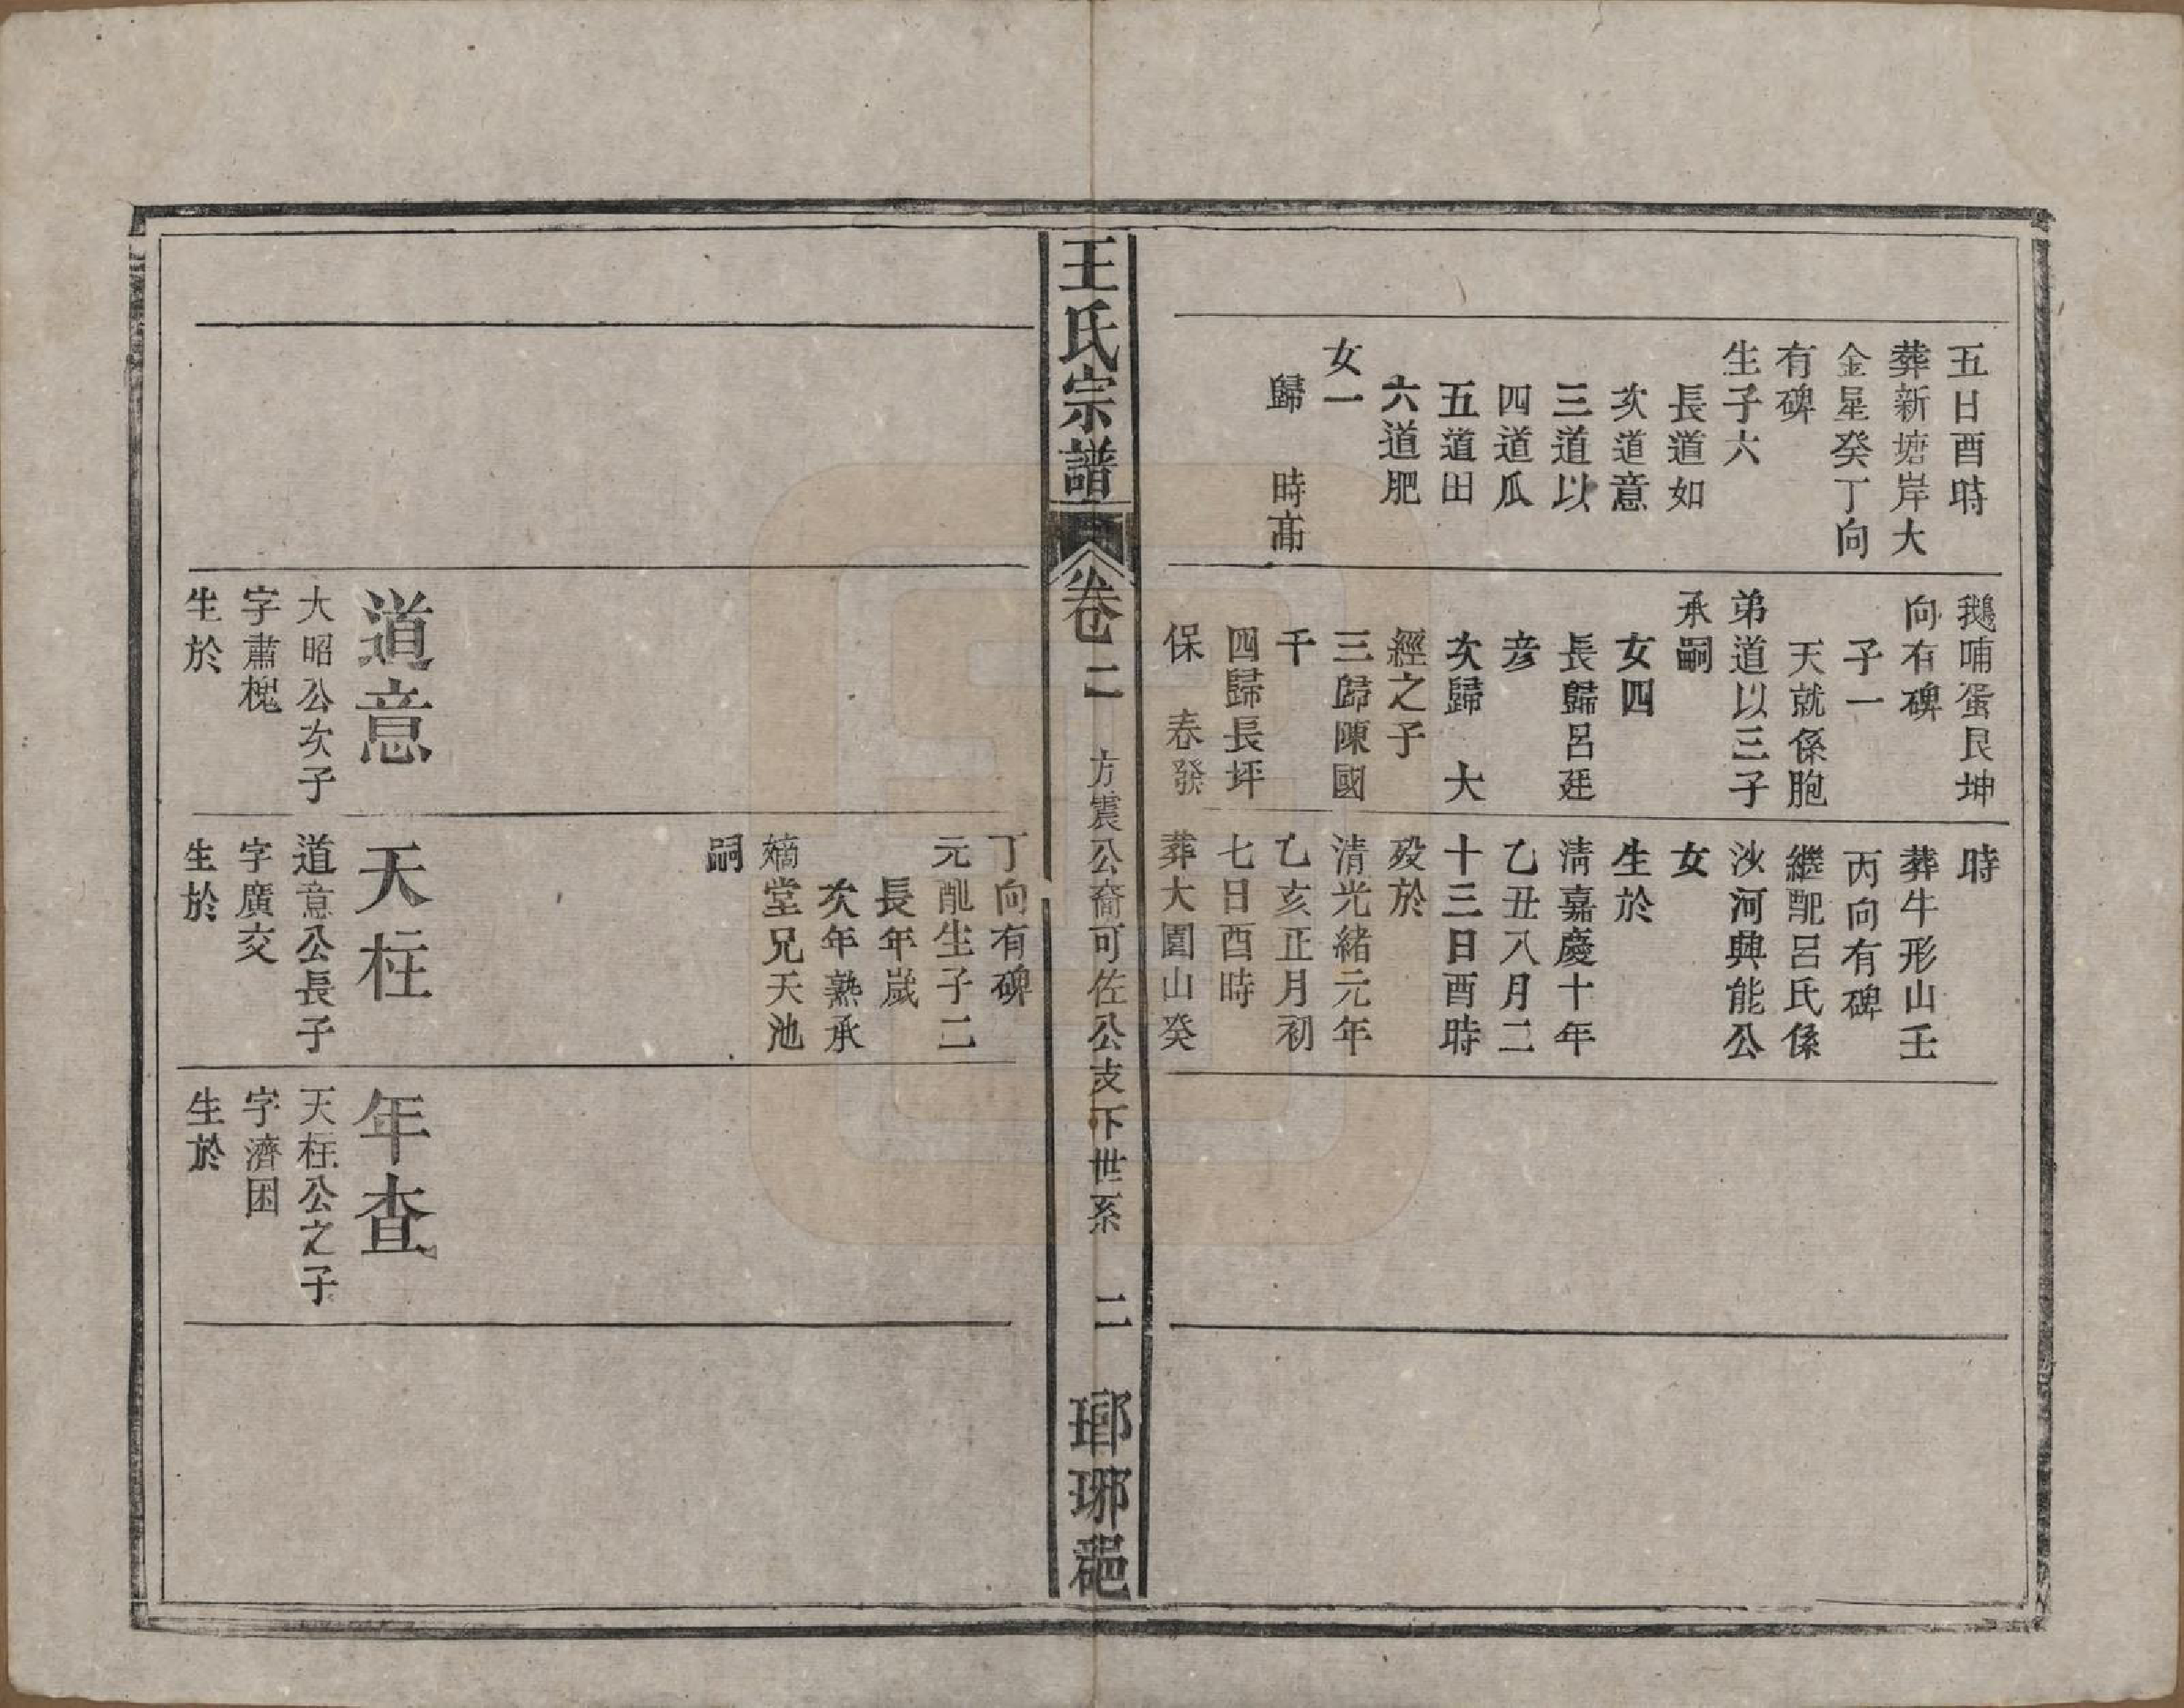 五日酉時
葬新塘岸大
金星癸丁向
有碑
生子六
長道如
次道意
三道以
四道瓜
五道田
六道肥
女一
歸 時高
鵝哺蛋艮坤
向有碑
子一
天就係胞
弟道以三子
承嗣
女四
長歸呂廷
彥
次歸 大
經之子
三歸陳國
千
四歸長坪
保 春發
時
葬牛形山壬
丙向有碑
繼配呂氏係
沙河典能公
女
生於
清嘉慶十年
乙丑八月二
十三日酉時
殁於
清光緒元年
乙亥正月初
七日酉時
葬大園山癸
王氏宗譜
卷二
方震公裔可佐公支下世系 二
瑯琊
丁向有碑
元配生子二
長年歲
次年熟承
嫡堂兄天池
嗣
道意
大昭公次子
字肅槐
生於
天柱
道意公長子
字廣交
生於
年查
天柱公之子
字濟困
生於